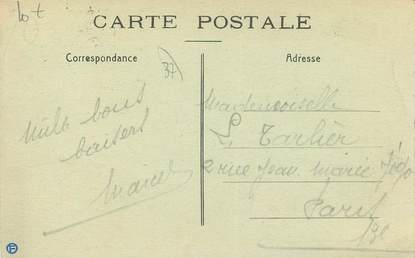 lot
CARTE POSTALE
Correspondance
37
Adresse
Mille bons
baisers
Marcel
Mademoiselle
L Tarlier
2 rue Jean Marie Jégo
Paris
13e